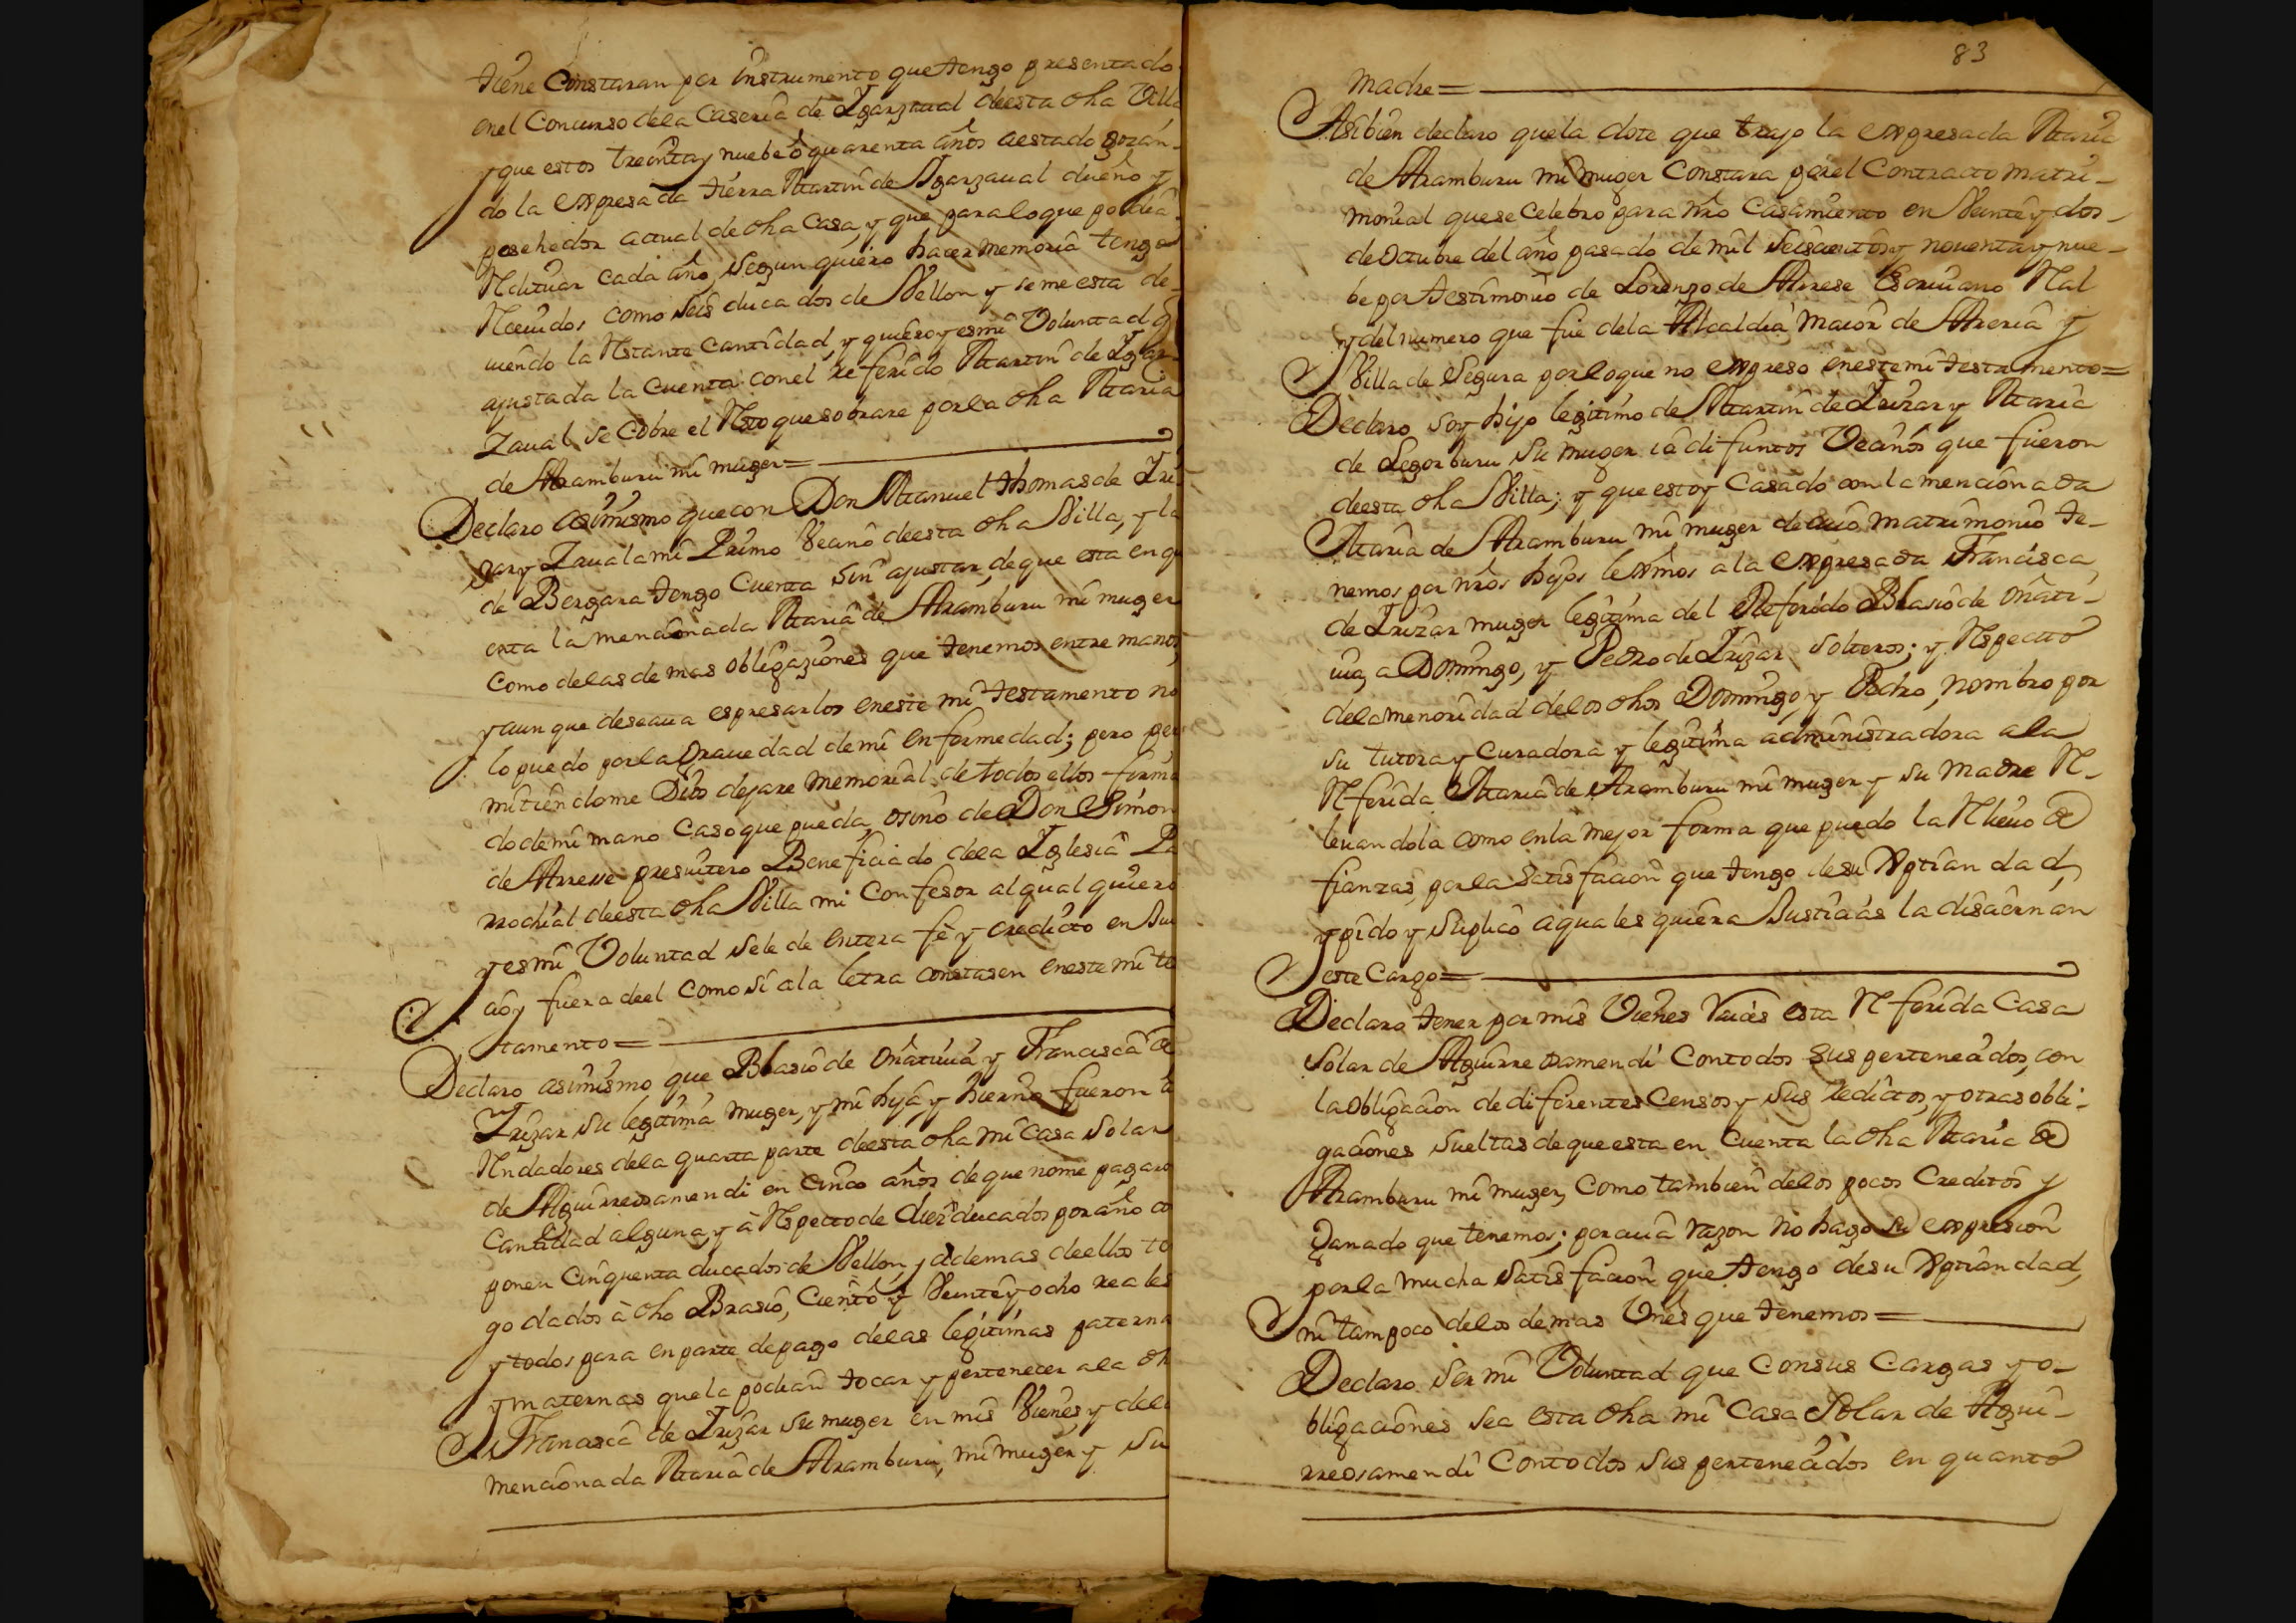 tiene Constaran por instrumento que tengo presentado
en el Concurso de la Caseria de Ygarzaual de esta dha Villa
y que estos treinta y nuebe ó quarenta años a estado gozan-
do la expresada tierra Martin de Ygarzaual dueño y
posehedor actual de dha Casa, y que para lo que podia
Redituar cada año, segun quiero hacer memoria tengo
Rceuidos como seis ducados de Vellon y se me esta de-
uiendo la Restante cantidad, y quiero y es mi Voluntad q
ajustada la cuenta con el referido Martin de Ygar-
zaual se cobre el Resto que sobrare por la dha Maria
de Aramburu mi muger=
Declaro asimismo que con Don Manuel thomas de Yri
zar y Zauala mi Primo Vecino de esta dha Villa, y la
de Bergara tengo Cuenta sin ajustar, de que esta en qu
enta la mencionada Maria de Aramburu mi muger
como de las de mas obligaziones que tenemos entre manos,
y aunque deseaua espresarlos en este mi testamento no
lo puedo por la Grauedad de mi enfermedad; pero per
mitiendome Dios dejare memorial de todos ellos firma
do de mi mano caso que pueda, o sino de Don Simon
de Arrese presuitero Beneficiado de la Yglesia Pa
rrochial de esta dha Villa mi Confesor al qual quiero
y es mi Voluntad se le de entera fe y credicto en Jui
cio y fuera de el como si a la letra constasen en este mi te
stamento=
Declaro asimismo que Blasio de Oñatiuia y Francisca de
Yrizar su legitima muger, y mi hija y hierno fueron A
Rendadores de la quarta parte de esta dha mi Casa Solar
de Aguirreosamendi en cinco años de que no me pagaro
Cantidad alguna, y à Respecto de diez ducados por año co
ponen cinquenta ducados de Vellon, y ademas de ellos te
go dados à dho Brasio, ciento y Veinte y ocho reales
y todos para en parte de pago de las legitimas paterna
y maternas que la podran tocar y pertenecer a la dh
Francisca de Yrizar su muger en mis Vienes y de la
mencionada Maria de Aramburu, mi muger y su
83
Madre=
Asibien declaro que la dote que trajo la expresada Maria
de Aramburu mi muger Constara por el Contracto matri-
monial que se celebro para nro Casamiento en Veinte y dos
de Octubre del año pasado de mil seiscientos y nouenta y nue-
be por testimonio de Lorenzo de Arrese Escriuano Real
y del numero que fue de la Alcaldia maior de Areria y
Villa de Segura por lo que no expreso en este mi testamento=
Declaro soy hijo legitimo de Martin de Yrizar y Maria
de Legorburu su muger ia difuntos Vecinos que fueron
de esta dha Villa; y que estoy Casado con la mencionada
Maria de Aramburu mi muger de cuio matrimonio te-
nemos por nros hijos lexmos a la expresada Francisca
de Yrizar muger legitima del Referido Blasio de Oñati-
uia, a Domingo, y Pedro de Yrizar solteros; y Respecto
de la menoridad de los dhos Domingo y Pedro, nombro por
su tutora y curadora y legitima administradora a la
Referida Maria de Aramburu mi muger y su madre Re-
leuandola como en la mejor forma que puedo la Relieuo de
fianzas, por la satisfacion que tengo de su Xptiandad,
y pido y suplico a quales quiera Justicias la disciernan
este Cargo=
Declaro tener por mis Vienes Raices esta Referida Casa
Solar de Aguirreosamendi Con todos sus pertenecidos, con
la obligacion de diferentes Censos y sus redictos, y otras obli-
gaciones sueltas de que esta en cuenta la dha Maria de
Aramburu mi muger, como tambien de los pocos Creditos y
Ganado que tenemos; por cuia razon no hago su expresion
por la mucha satisfacion que tengo de su Xptiandad,
ni tampoco de los demas Vnes que tenemos=
Declaro ser mi Voluntad que con sus cargas y o-
bligaciones sea esta dha mi Casa Solar de Agui-
rreosamendi con todos sus pertenecidos en quanto